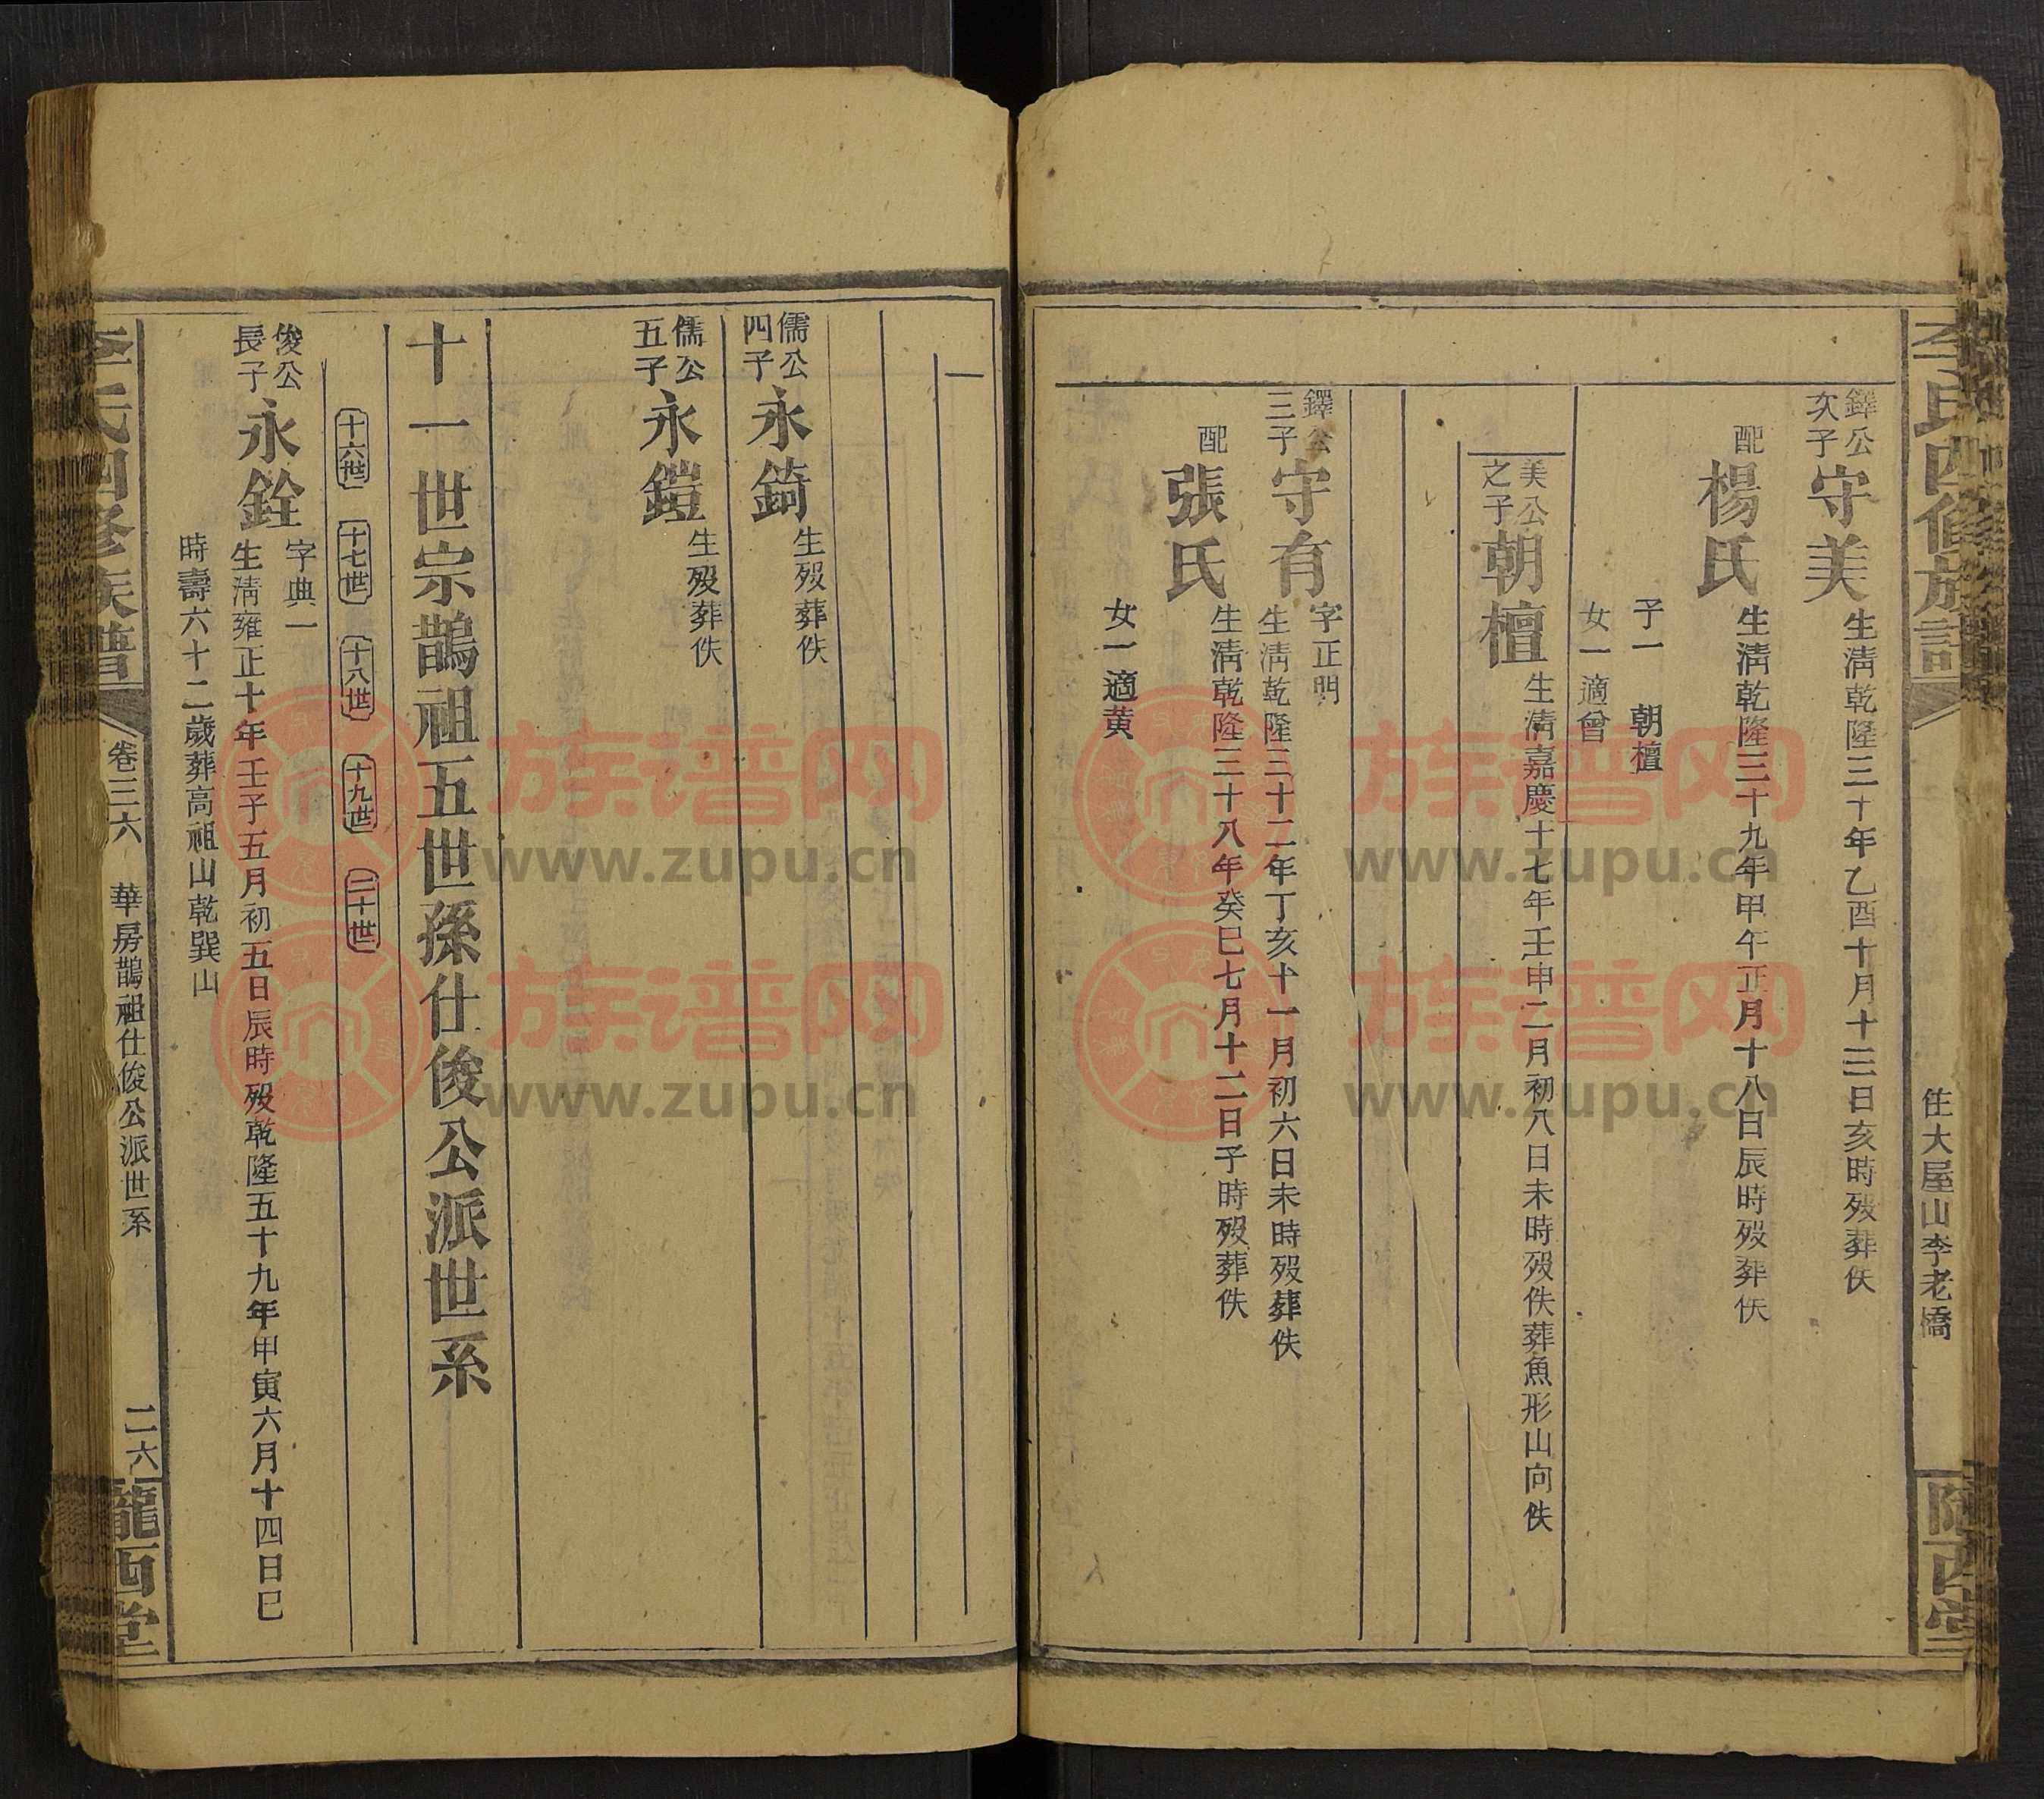 李氏四修族譜
住大屋山李老橋
隴西堂
鐸公次子
守美
生清乾隆三十年乙酉十月十三日亥時歿葬佚
配
楊氏
生清乾隆三十九年甲午正月十八日辰時歿葬佚
子一 朝檀
女一適曾
美公之子
朝檀
生清嘉慶十七年壬申二月初八日未時歿佚葬魚形山向佚
鐸公三子
守有
字正門
生清乾隆三十二年丁亥十一月初六日未時歿葬佚
配
張氏
生清乾隆三十八年癸巳七月十二日子時歿葬佚
女一適黃
儒公四子
永錡
生歿葬佚
儒公五子
永鎧
生歿葬佚
十一世宗鵲祖五世孫仕俊公派世系
十六世 十七世 十八世 十九世 二十世
俊公長子
永銓
字典一
生清雍正十年壬子五月初五日辰時歿乾隆五十九年甲寅六月十四日巳
時壽六十二歲葬高祖山乾巽山
李氏四修族譜
卷三六 華房鵲祖仕俊公派世系
二六
隴西堂
族谱网
www.zupu.cn
族谱网
www.zupu.cn
族谱网
www.zupu.cn
族谱网
www.zupu.cn